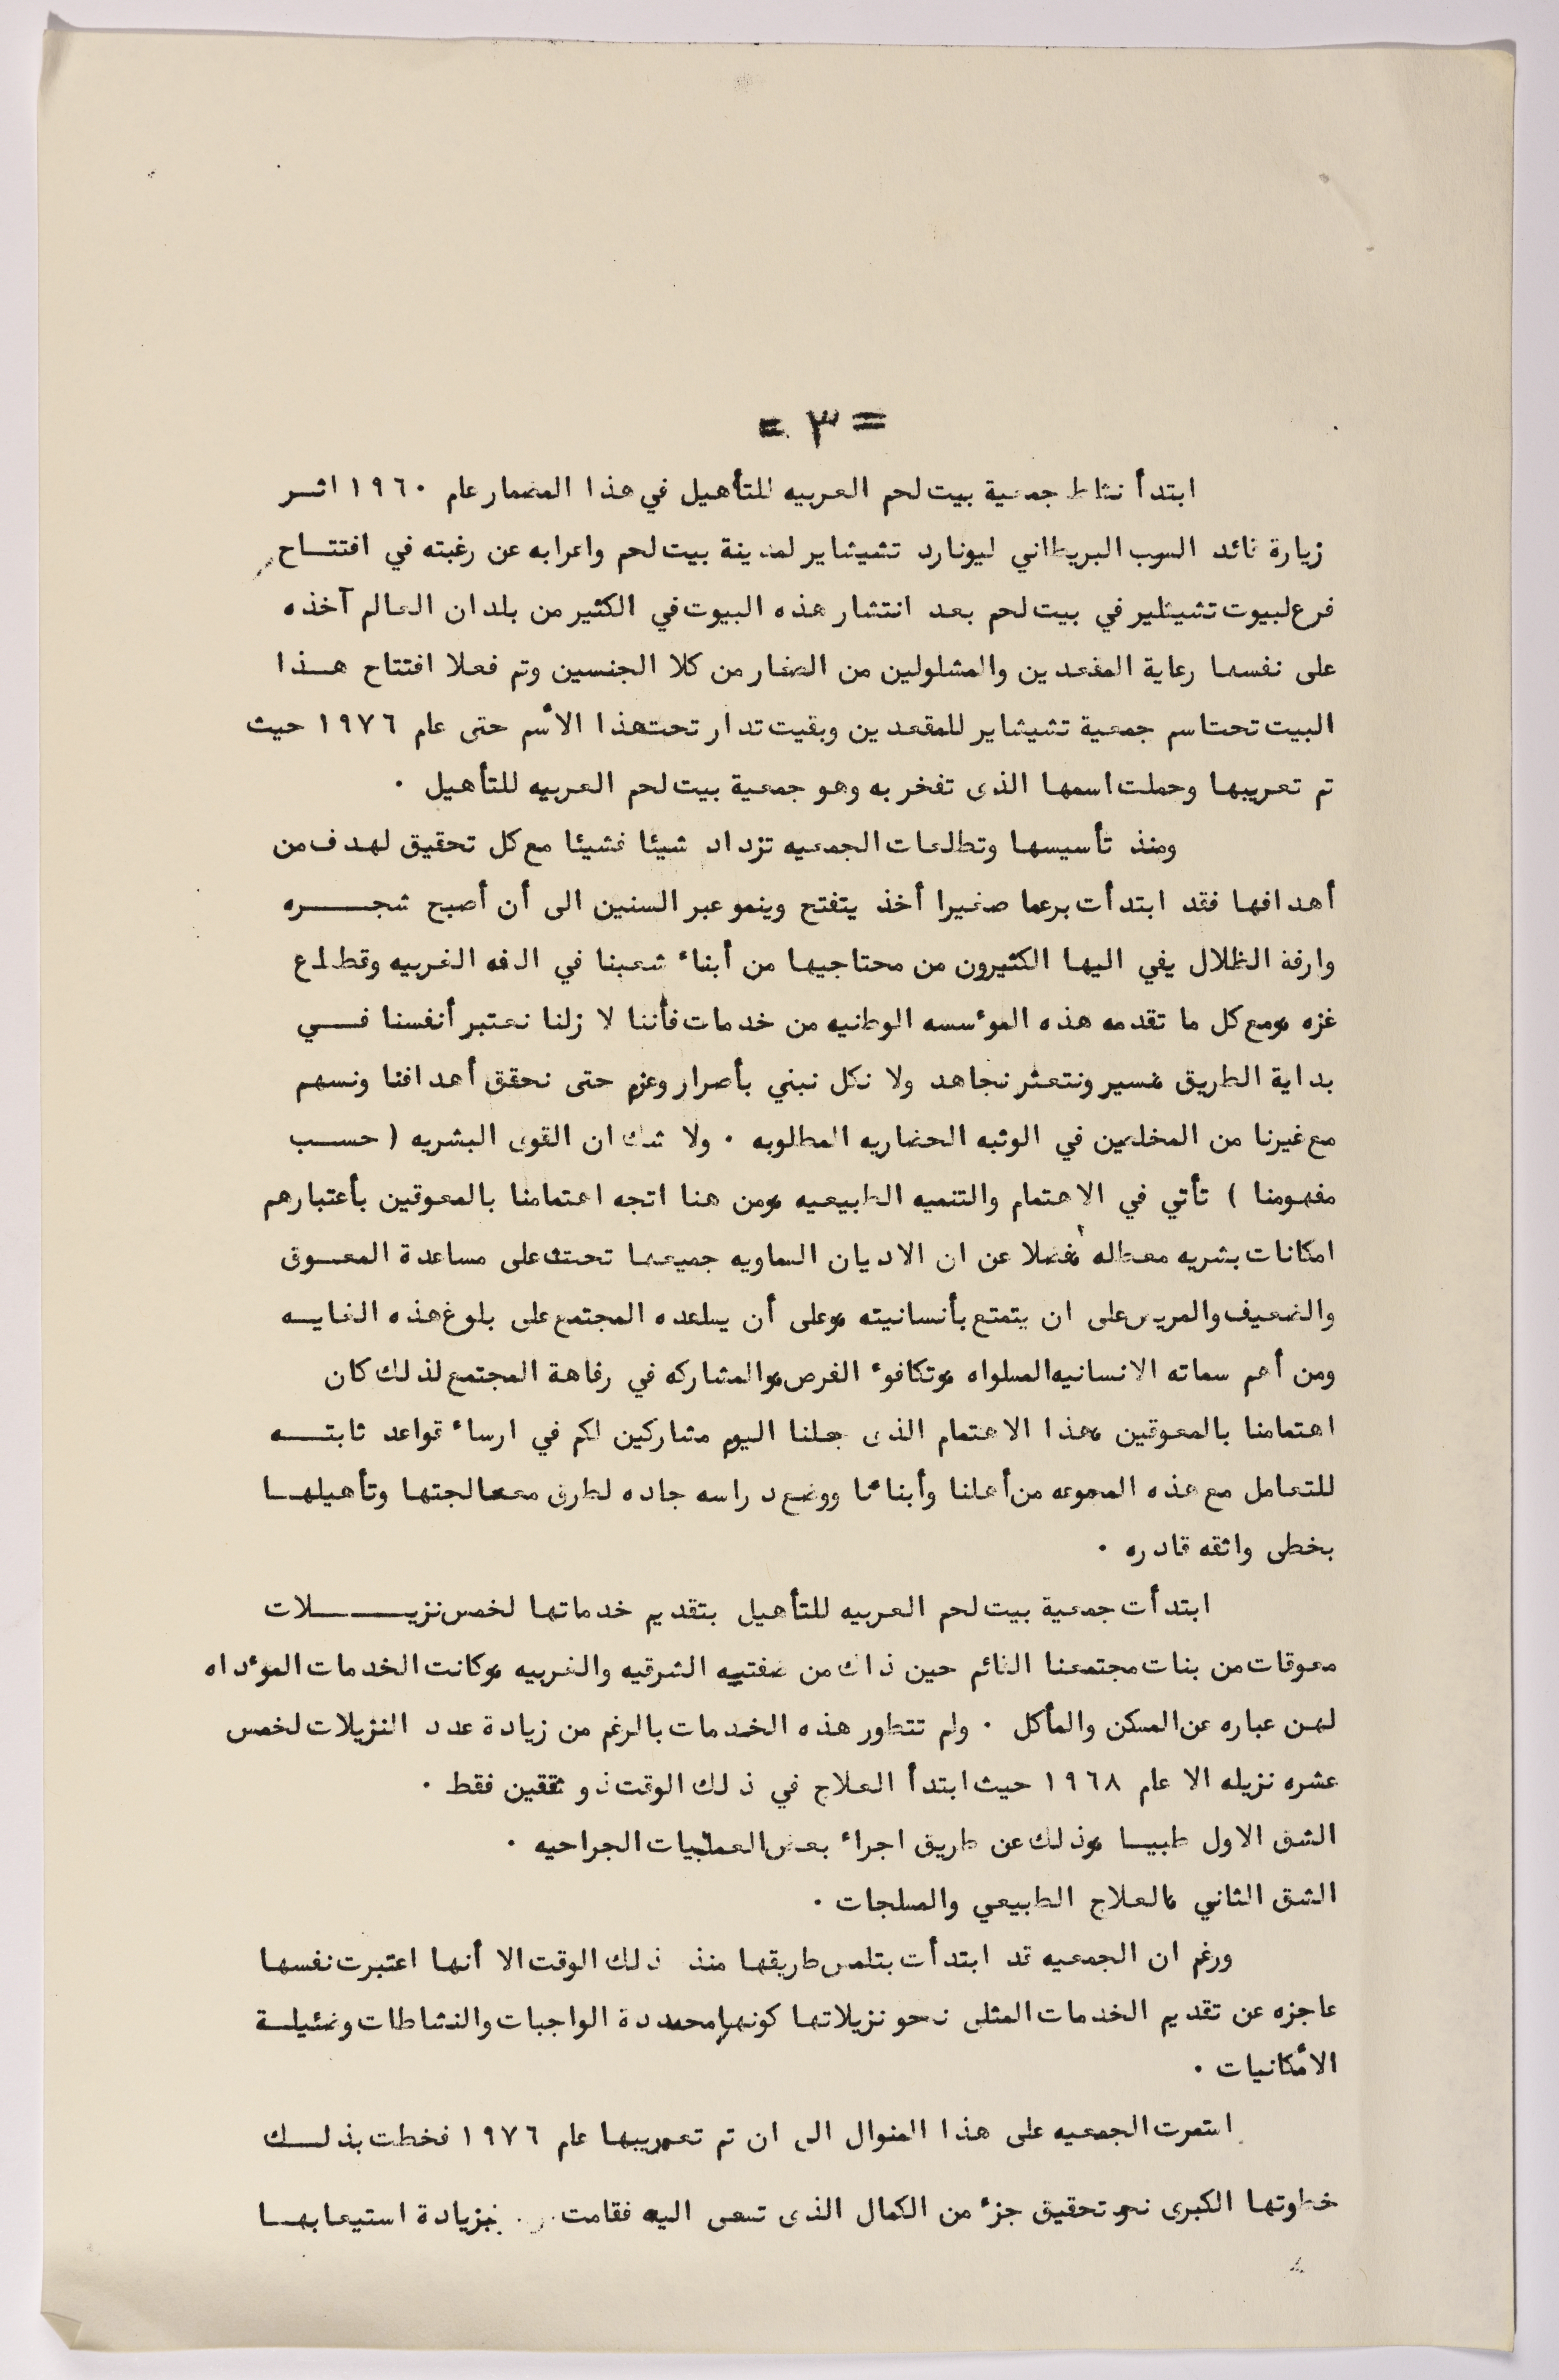 = ٣ =
ابتدأ نشاط جمعية بيت لحم العربيه للتأهيل في هذا المضمار عام ١٩٦٠ اثـــر
زيارة قائد السرب البريطاني ليونارد تشيشاير لمدينة بيت لحم واعرابه عن رغبته في افتتـــاح
فرع لبيوت تشيشلير في بيت لحم بعد انتشار هذه البيوت في الكثير من بلدان العالم آخذه
على نفسها رعاية المقعدين والمشلولين من الصغار من كلا الجنسين وتم فعلا افتتاح هـــذا
البيت تحت اسم جمعية تشيشاير للمقعدين وبقيت تدار تحت هذا الأسم حتى عام ١٩٧٦ حيث
تم تعريبها وحملت اسمها الذى تفخر به وهو جمعية بيت لحم العربيه للتأهيل .
ومنذ تأسيسها وتطلعات الجمعيه تزداد شيئا فشيئا مع كل تحقيق لهدف من
أهدافها فقد ابتدأت برعما صغيرا أخذ يتفتح وينمو عبر السنين الى أن أصبح شجـــــره
وارفة الظلال يفي اليها الكثيرون من محتاجيها من أبناء شعبنا في الضفه الغربيه وقطاع
غزه ومع كل ما تقدمه هذه المؤسسه الوطنيه من خدمات فأننا لا زلنا نعتبر أنفسنا فـــي
بداية الطريق نسير ونتعثر نجاهد ولا نكل نبني بأصرار وعزم حتى نحقق أهدافنا ونسهم
مع غيرنا من المخلصين في الوثبه الحضاريه المطلوبه . ولا شك ان القوى البشريه ( حســب
مفهومنا ) تأتي في الاهتمام والتنميه الطبيعيه ومن هنا اتجه اهتمامنا بالمعوقين بأعتبارهم
امكانات بشريه معطله فضلا عن ان الاديان السماويه جميعها تحث على مساعدة المعــوق
والضعيف والمريض على ان يتمتع بأنسانيته وعلى أن يساعده المجتمع على بلوغ هذه الغايــه
ومن أهم سماته الانسانيه المساواه وتكافوء الفرص والمشاركه في رفاهة المجتمع لذلك كان
اهتمامنا بالمعوقين هذا الاهتمام الذى جعلنا اليوم مشاركين لكم في ارساء قواعد ثابتـــه
للتعامل مع هذه المجموعه من أهلنا وأبنائنا ووضع دراسه جاده لطرق معالجتها وتأهيلهــا
بخطى واثقه قادره .
ابتدأت جمعية بيت لحم العربيه للتأهيل بتقديم خدماتها لخمس نزيـــــــلات
معوقات من بنات مجتمعنا القائم حين ذاك من ضفتيه الشرقيه والغربيه وكانت الخدمات الموءداه
لهن عباره عن المسكن والمأكل . ولم تتطور هذه الخدمات بالرغم من زيادة عدد النزيلات لخمس
عشره نزيله الا عام ١٩٦٨ حيث ابتدأ العلاج في ذلك الوقت ذو شقين فقط .
الشق الاول طبيــا وذلك عن طريق اجراء بعض العمليات الجراحيه .
الشق الثاني العلاج الطبيعي والمساجات .
ورغم ان الجمعيه قد ابتدأت بتلمس طريقها منذ ذلك الوقت الا أنها اعتبرت نفسها
عاجزه عن تقديم الخدمات المثلى نحو نزيلاتها كونها محددة الواجبات والنشاطات وضئيلــة
الأمكانيات .
استمرت الجمعيه على هذا المنوال الى ان تم تعريبها عام ١٩٧٦ فخطت بذلـــك
خطوتها الكبرى نحو تحقيق جزء من الكمال الذى تسعى اليه فقامت بزيادة استيعابهــا